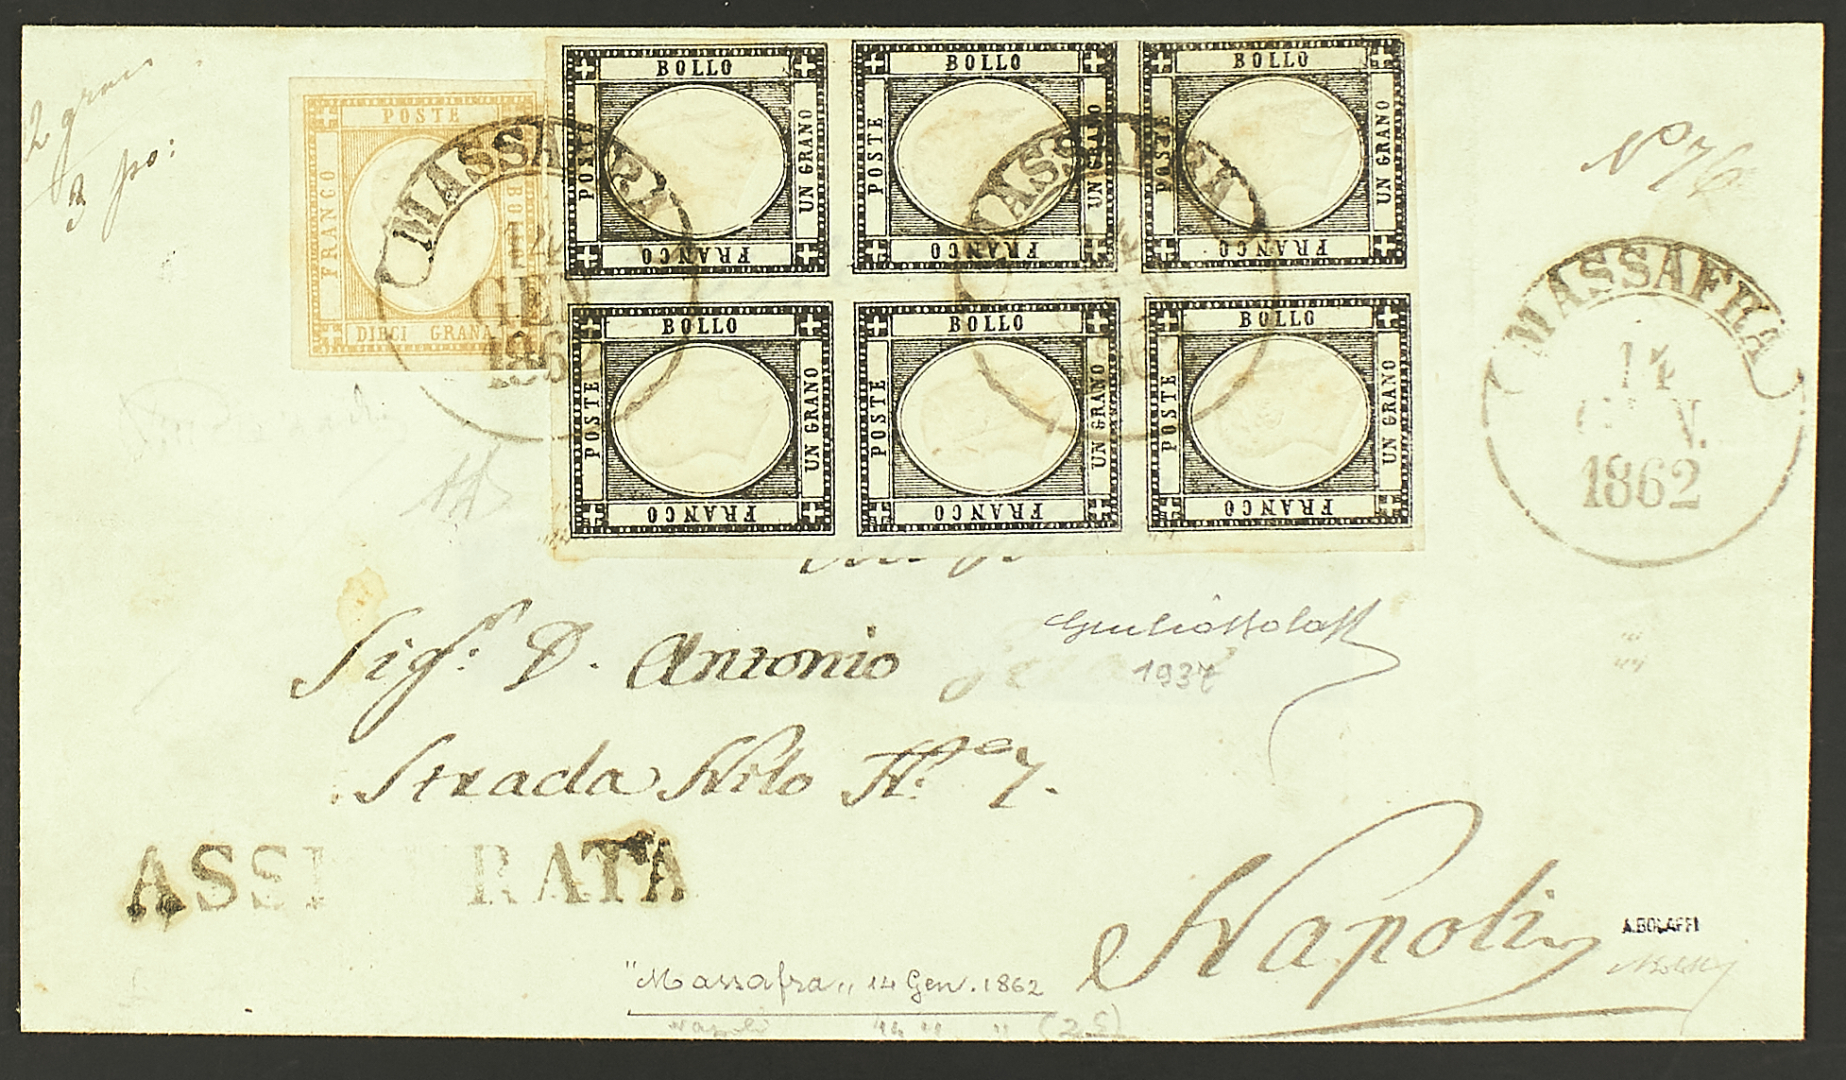 2 grana
3 po:
POSTE
FRANCO
BOLLO
DIECI GRANA
BOLLO
POSTE
UN GRANO
FRANCO
BOLLO
POSTE
UN GRANO
FRANCO
BOLLO
POSTE
UN GRANO
FRANCO
BOLLO
POSTE
UN GRANO
FRANCO
BOLLO
POSTE
UN GRANO
FRANCO
BOLLO
POSTE
UN GRANO
FRANCO
MASSAFRA
14
GEN.
1862
MASSAFRA
14
GEN.
1862
No 76
MASSAFRA
14
GEN.
1862
1937
Sigr. D. Antonio
Strada Nilo No. 7.
ASSICURATA
Napoli
A.BOLAFFI
"Massafra„ 14 Gen. 1862
Napoli